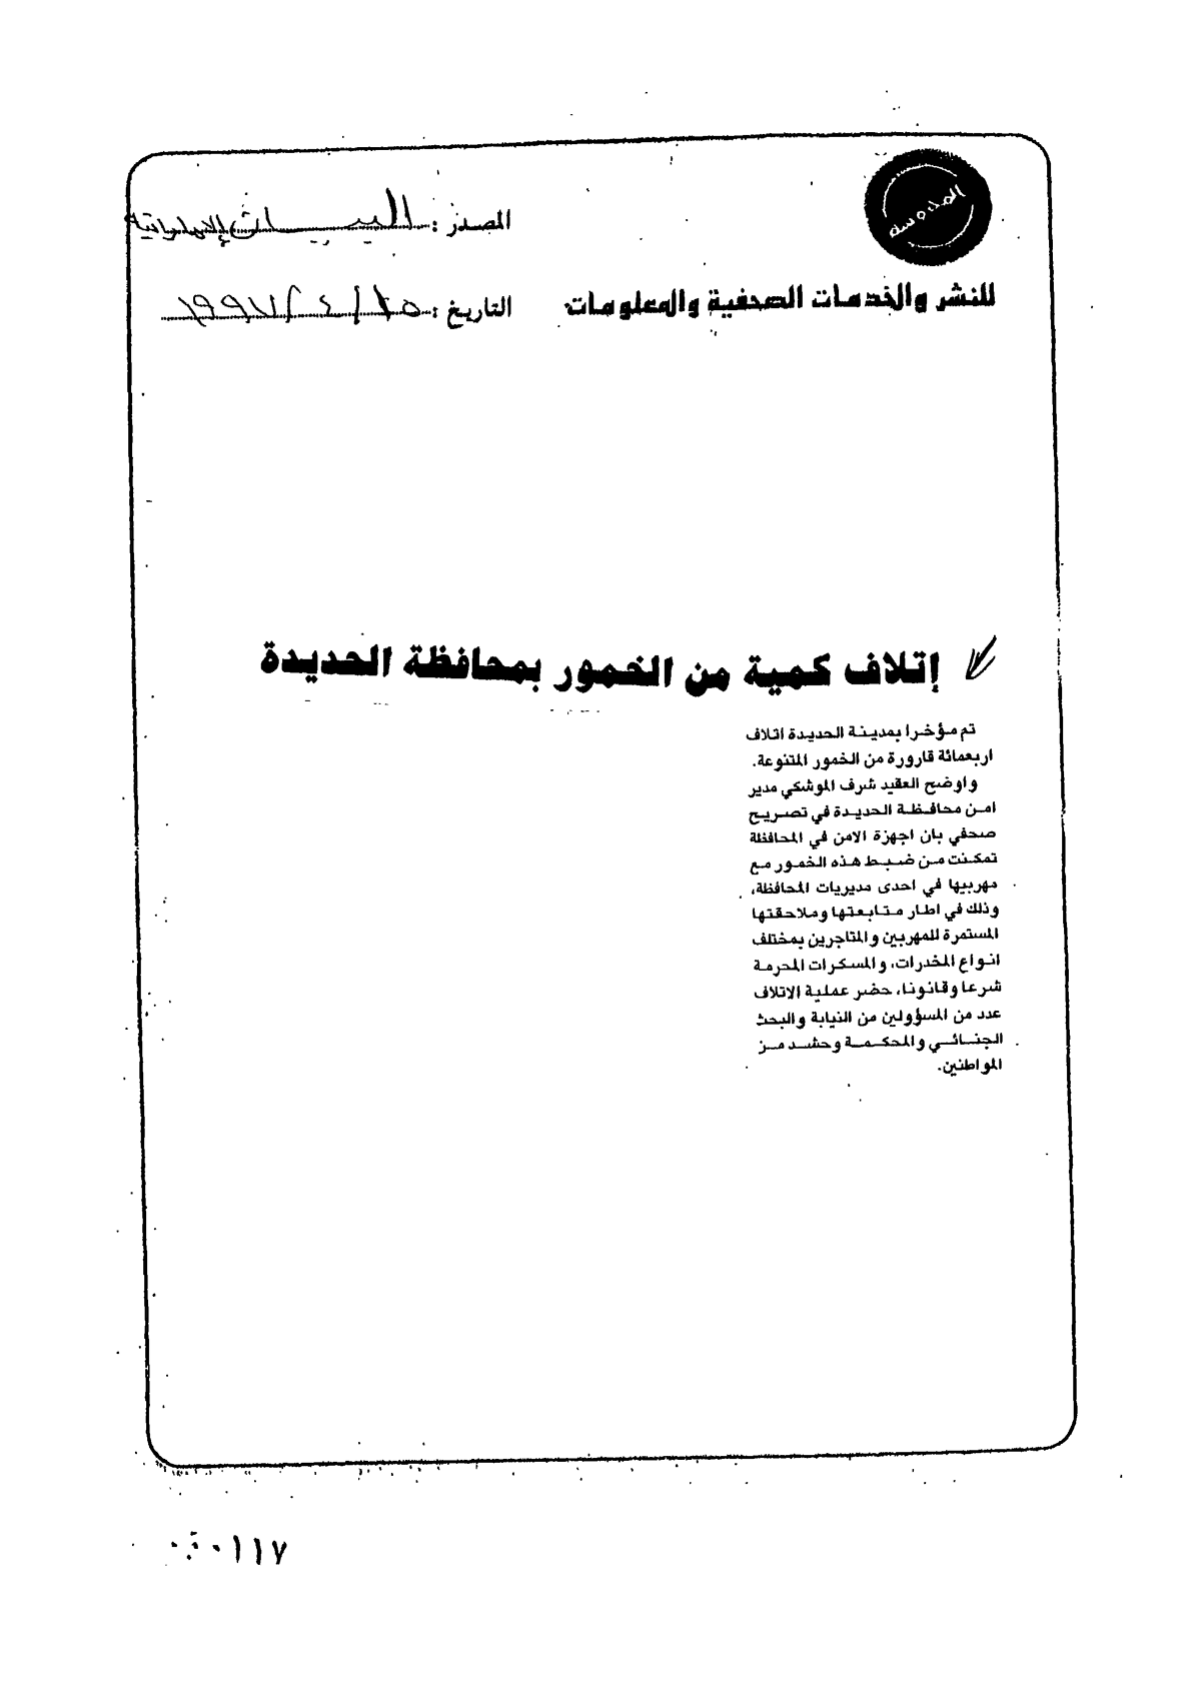 المحروسة
المصدر : البيان الإماراتية
للنشر والخدمات الصحفية والمعلومات
التاريخ : ٢٥ / ٤ / ١٩٩٧
إتلاف كمية من الخمور بمحافظة الحديدة
تم مؤخرا بمدينة الحديدة اتلاف
اربعمائة قارورة من الخمور المتنوعة.
واوضح العقيد شرف الموشكي مدير
امن محافظة الحديدة في تصريح
صحفي بان اجهزة الامن في المحافظة
تمكنت من ضبط هذه الخمور مع
مهربيها في احدى مديريات المحافظة،
وذلك في اطار متابعتها وملاحقتها
المستمرة للمهربين والمتاجرين بمختلف
انواع المخدرات، والمسكرات المحرمة
شرعا وقانونا، حضر عملية الاتلاف
عدد من المسؤولين من النيابة والبحث
الجنائي والمحكمة وحشد من
المواطنين.
٠١١٧